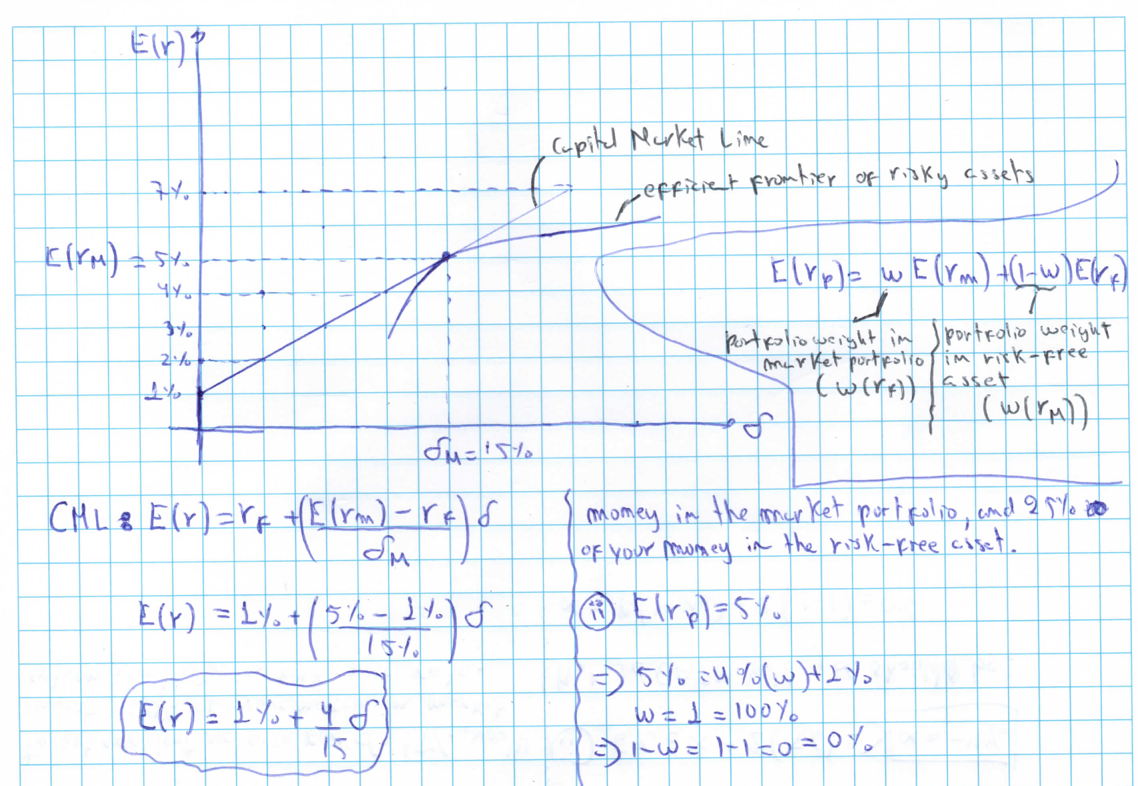 E(r)
Capital Market Line
7%
efficient frontier of risky assets
E(rM) = 5%
4%
3%
2%
1%
σM = 15%
σ
E(rp) = w E(rm) + (1-w) E(rf)
portfolio weight in
market portfolio
(w(rf))
portfolio weight
in risk-free
asset
(w(rM))
CML: E(r) = rf + (E(rm) - rf / σM) σ
E(r) = 1% + (5% - 1% / 15%) σ
E(r) = 1% + 4/15 σ
money in the market portfolio, and 25%
of your money in the risk-free asset.
(ii) E(rp) = 5%
=> 5% = 4%(w) + 1%
w = 1 = 100%
=> 1-w = 1-1 = 0 = 0%